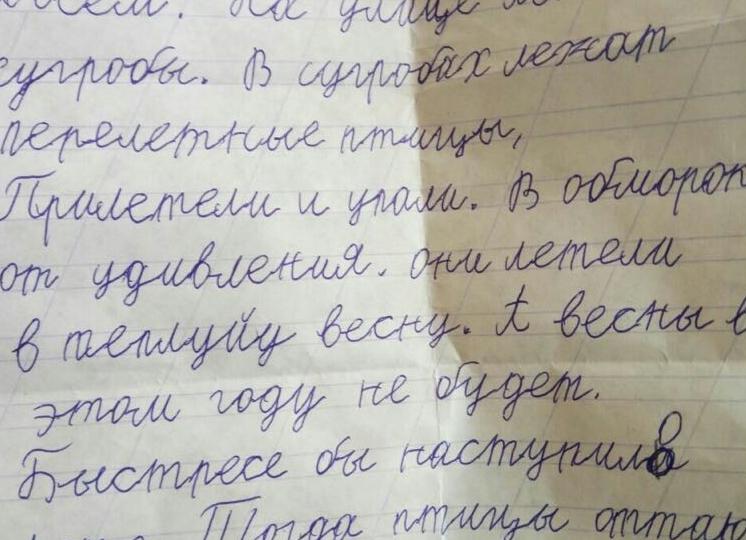 На улице
сугробы. В сугробах лежат
перелетные птицы,
Прилетели и упали. В обморок
от удивления. они летели
в теплуйу весну. А весны в
этом году не будет.
Быстресе бы наступило
Тогда птицы оттаю